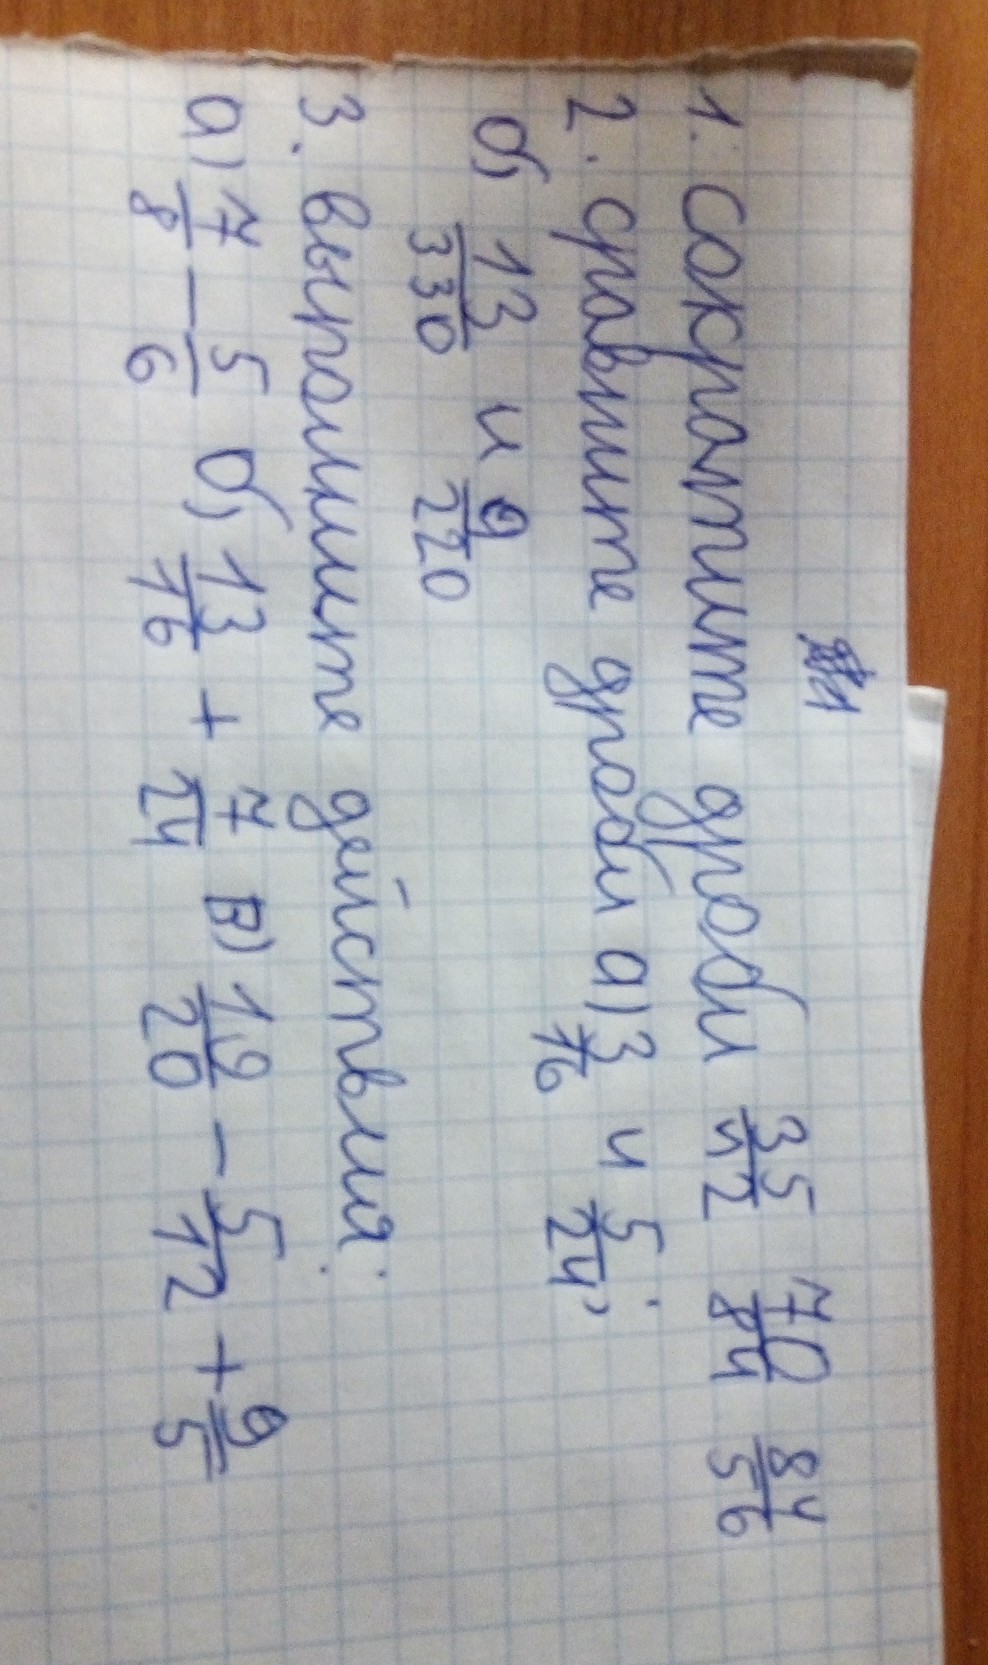 1. сократите дроби 35/42 70/84 84/56
2. сравните дроби а) 3/16 и 5/24;
б) 13/330 и 9/220
3. выполните действия:
а) 7/8 - 5/6 б) 13/16 + 7/24 в) 19/20 - 5/12 + 9/5